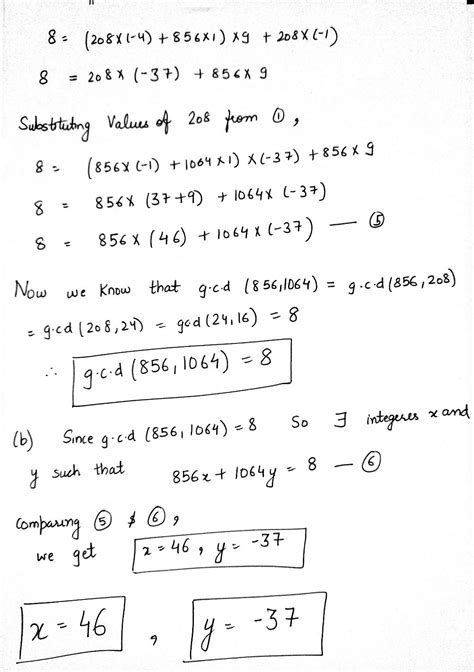 8 = (208×(-4) + 856×1) × 9 + 208×(-1)
8 = 208× (-37) + 856×9
Substituting Values of 208 from ①,
8 = (856×(-1) + 1064×1) ×(-37) + 856×9
8 = 856× (37+9) + 1064×(-37)
8 = 856×(46) + 1064×(-37) — ⑤
Now we know that g.c.d (856,1064) = g.c.d(856,208)
= g.c.d (208,24) = gcd(24,16) = 8
∴ g.c.d (856,1064) = 8
(b) Since g.c.d (856,1064) = 8 So ∃ integeres x and
y such that 856x + 1064y = 8 — ⑥
Comparing ⑤ & ⑥,
we get x = 46, y = -37
x = 46 , y = -37